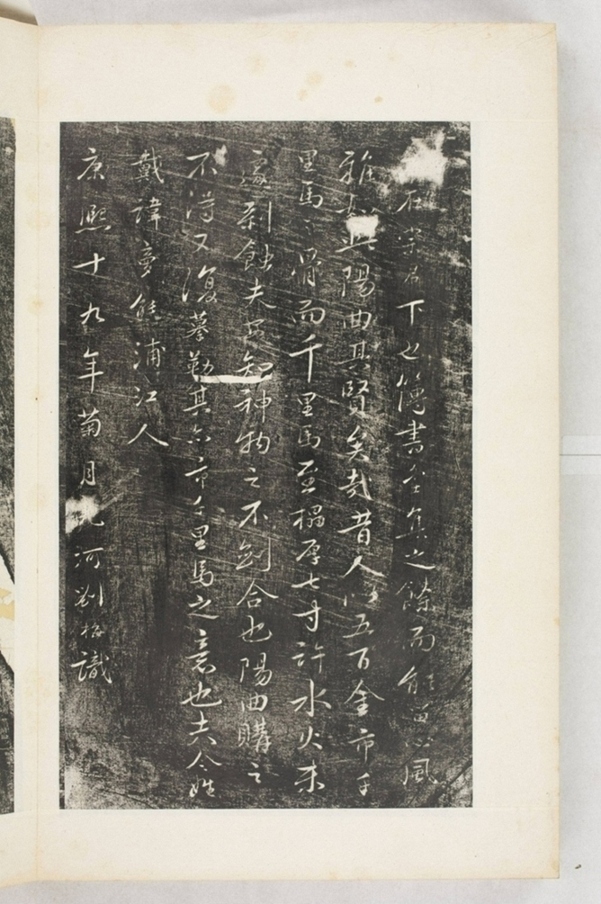 下也簿書全集之餘而能留心風
雅如吾陽曲其賢矣哉昔人以五百金市千
里馬之骨而千里馬至榻厚七寸許水火未
剝蝕夫安知神物之不劍合也陽曲購之
不得又復摹勒其亦市千里馬之意也夫令姓
戴諱夢熊浦江人
康熙十九年菊月 河劉梅識